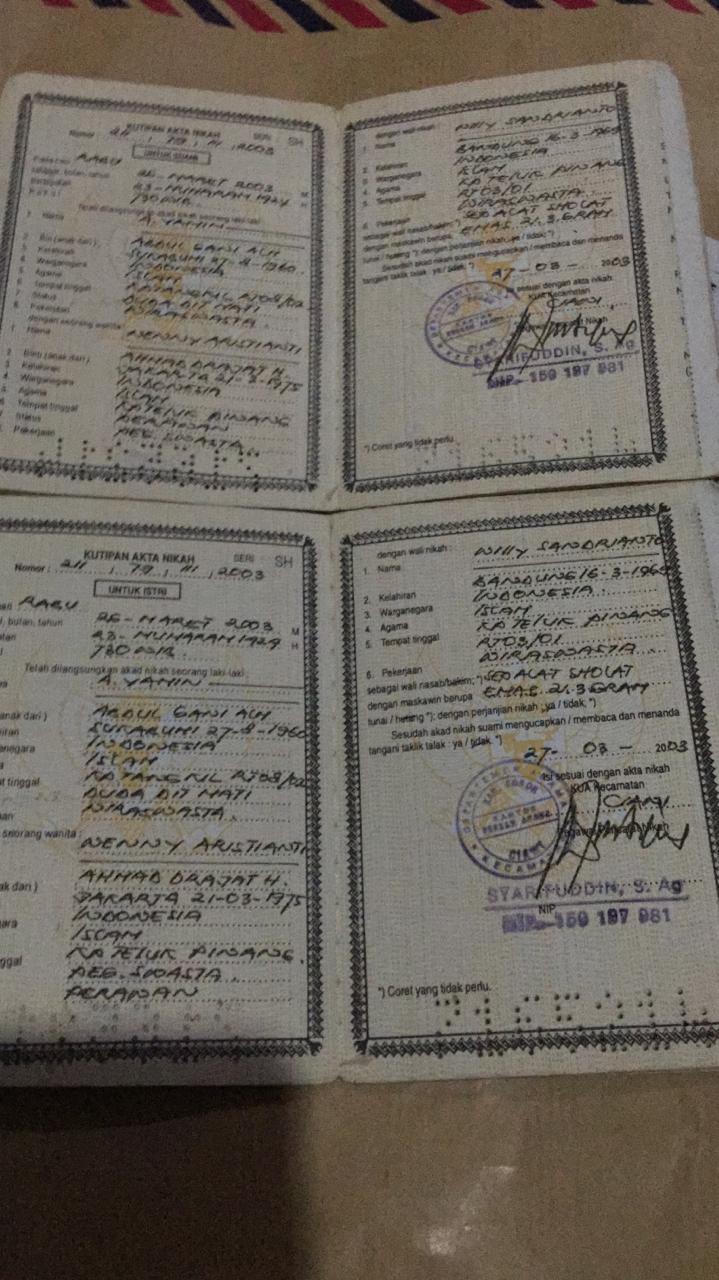 KUTIPAN AKTA NIKAH
SERI SH
Nomor : 211 / 79 / III / 2003
UNTUK SUAMI
RABU
26 - MARET 2003 M
23 - MUHARAM 1424 H
730 WIB.
Telah dilangsungkan akad nikah seorang laki-laki :
1. Nama A. YAMIN
2. Bin (anak dari) ABDUL GANI ALH
3. Kelahiran SUKABUMI 27-8-1960
4. Warganegara INDONESIA
5. Agama ISLAM
6. Tempat tinggal RT03/02
7. Status DUDA DIT MATI
8. Pekerjaan WIRASWASTA
dengan seorang wanita :
1. Nama NENNY ARISTIANTI
2. Binti (anak dari) AHMAD DRAJAT H.
3. Kelahiran JAKARTA 21-3-1975
4. Warganegara INDONESIA
5. Agama ISLAM
6. Tempat tinggal KP TELUK PINANG
7. Status PERAWAN
8. Pekerjaan PEG. SWASTA
dengan wali nikah : WILLY SANDRIANTO
1. Nama
2. Kelahiran BANDUNG 16-3-1960
3. Warganegara INDONESIA
4. Agama ISLAM
5. Tempat tinggal KP TELUK PINANG
RT03/01
6. Pekerjaan WIRASWASTA
sebagai wali nasab/hakim; *) SEP ALAT SHOLAT
dengan maskawin berupa EMAS. 21.3.GRAM
tunai / hutang *); dengan perjanjian nikah : ya / tidak; *)
Sesudah akad nikah suami mengucapkan / membaca dan menanda
tangani taklik talak : ya / tidak. *)
27 - 03 - 2003
isi sesuai dengan akta nikah
KUA Kecamatan
CIAWI
Nikah
SYARIFUDDIN, S. Ag
NIP. 150 197 981
*) Coret yang tidak perlu.
KUTIPAN AKTA NIKAH
SERI SH
Nomor : 211 / 79 / III / 2003
UNTUK ISTRI
RABU
bulan, tahun 26 - MARET 2003 M
23 - MUHARAM 1424 H
730 WIB.
Telah dilangsungkan akad nikah seorang laki-laki :
A. YAMIN
anak dari ) ABDUL GANI ALH
SUKABUMI 27-8-1960
INDONESIA
ISLAM
tinggal RT03/02
DUDA DIT MATI
WIRASWASTA
seorang wanita :
NENNY ARISTIANTI
AHMAD DRAJAT H.
JAKARTA 21-03-1975
INDONESIA
ISLAM
KP TELUK PINANG
PEG. SWASTA
PERAWAN
dengan wali nikah : WILLY SANDRIANTO
1. Nama
2. Kelahiran BANDUNG 16-3-1960
3. Warganegara INDONESIA
4. Agama ISLAM
5. Tempat tinggal KP TELUK PINANG
RT03/01
6. Pekerjaan WIRASWASTA
sebagai wali nasab/hakim; *) SEP ALAT SHOLAT
dengan maskawin berupa EMAS. 21.3 GRAM
tunai / hutang *); dengan perjanjian nikah : ya / tidak; *)
Sesudah akad nikah suami mengucapkan / membaca dan menanda
tangani taklik talak : ya / tidak. *)
27 - 03 - 2003
isi sesuai dengan akta nikah
KUA Kecamatan
CIAWI
SYARIFUDDIN, S. Ag
NIP. 150 197 981
*) Coret yang tidak perlu.